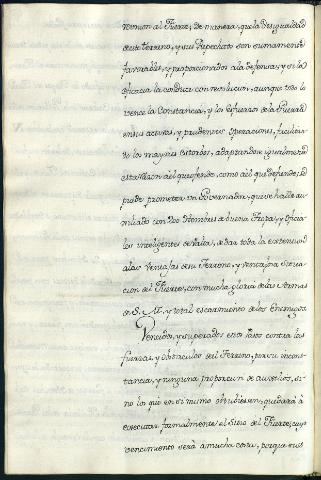 vencion al Fuerte, De manera, que la Desigualdad
de este Terreno, y sus Repechos son sumamente
favorables, y proporcionados a la defensa, y se la
la Conducta con resolucion, aunque todo lo
vence la Constancia, y los esfuerzos de la Guerra
en sus activas, y prudentes Operaciones, facilitan
do los mayores Estorbos, adaptandose igualmente
esta Razon al que ofende, como al que defiende, se
puede prometer un Governador, que se halle au
xiliado con 200 Hombres de buena Tropa, y Oficia
les inteligentes de valor, de dar toda la extension
a las Ventajas de su Terreno, y ventajosa Situa
cion del Fuerte, con mucha gloria de las Armas
de S. M. y total escarmiento de los Enemigos.
Vencidos, y superados estos pasos contra las
fuerzas, y obstaculos del Terreno, por su incons
tancia, y ninguna proporcion de auxilios, si
no los que en si mismo obtubiesen, quedará á
executar formalmente el Sitio del Fuerte, cuyo
vencimiento será a mucha costa, porque sus